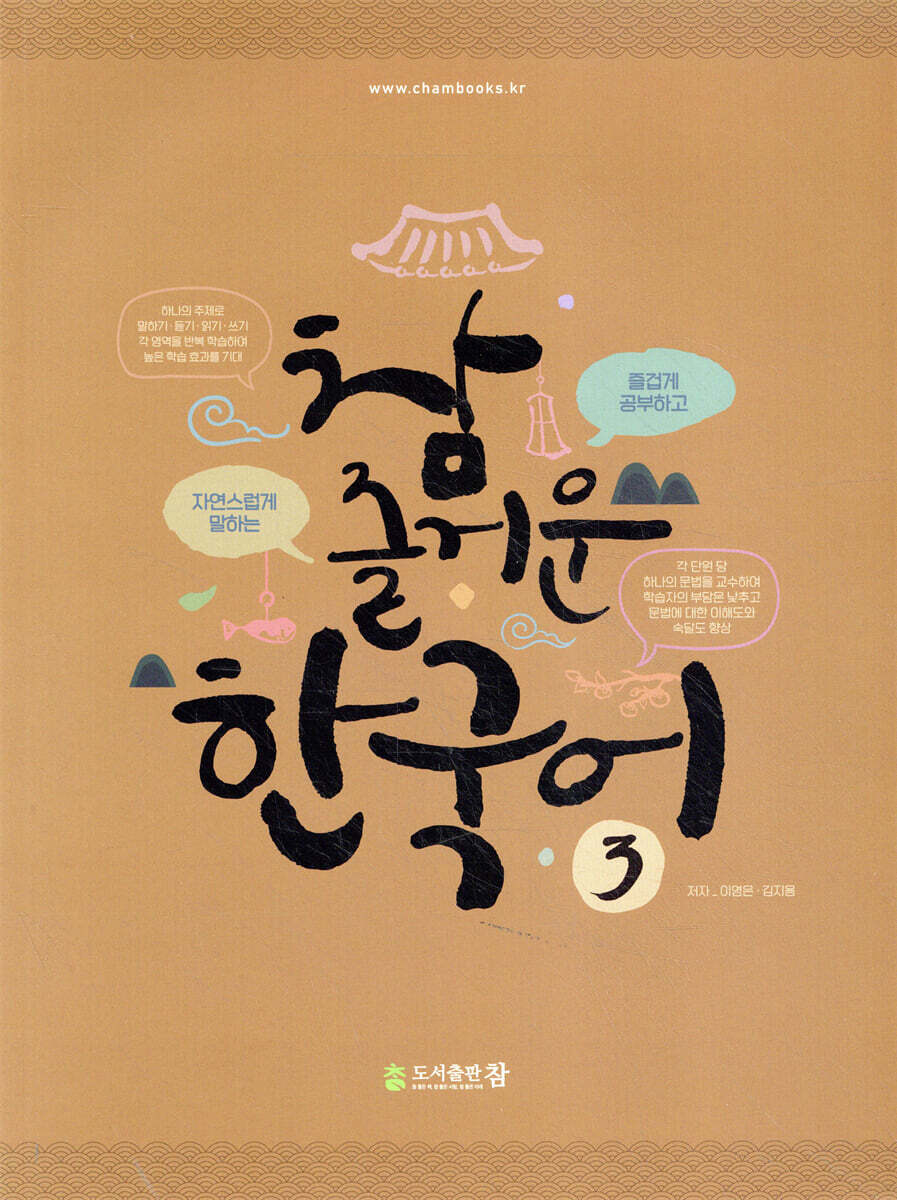 www.chambooks.kr
하나의 주제로
말하기·듣기·읽기·쓰기
각 영역을 반복 학습하여
높은 학습 효과를 기대
참
즐겁게
공부하고
자연스럽게
말하는
즐거운
각 단원 당
하나의 문법을 교수하여
학습자의 부담은 낮추고
문법에 대한 이해도와
숙달도 향상
한국어
3
저자 _ 이영은 · 김지용
도서출판 참
참 좋은 책, 참 좋은 사람, 참 좋은 미래